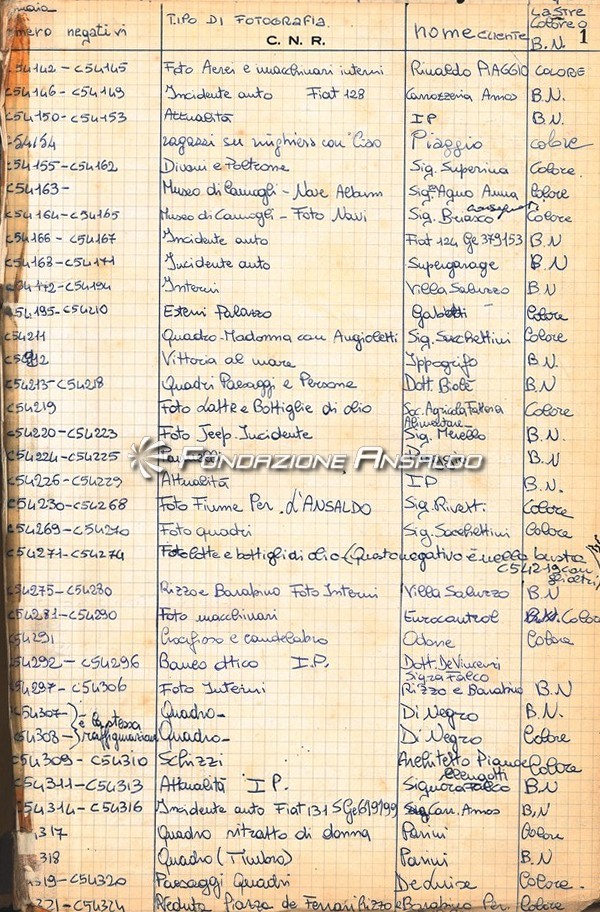 Lastre
TIPO DI FOTOGRAFIA Colore o 1
numero negativi C. N. R. nome CLIENTE B.N.
C54142-C54145 Foto Aerei e macchinari interni Rinaldo PIAGGIO COLORE
C54146-C54149 Incidente auto Fiat 128 Carrozzeria Amos B.N.
C54150-C54153 Attualità IP B.N.
C54154 ragazzi su con "Ciao" Piaggio colore
C54155-C54162 Divani e Poltrone Sig. Superina Colore.
C54163- Museo di Camogli - Nave Sig. Anna Colore
C54164-C54165 Museo di Camogli - Foto Navi Sig. Colore
C54166-C54167 Incidente auto Fiat 124 Ge 379153 B.N.
C54168-C54171 Incidente auto Supergarage B.N
C54172-C54194 Interni Villa Saluzzo B.N
C54195-C54210 Esterni Palazzo Colore
C54211 Quadro-Madonna con Angioletti Sig. Sacchettini Colore
Vittoria al mare Ippogrifo B.N.
C54213-C54218 Quadri Paesaggi e Persone Dott. B.N
C54219 Foto Latte e Bottiglie di olio Soc. Agricola Fattoria Colore
Alimentare-
C54220-C54223 Foto Jeep. Incidente Sig. Merello B.N.
C54224-C54225 B.N
FONDAZIONE ANSALDO
C54226-C54229 Attualità IP B.N.
C54230-C54268 Foto Fiume Per. d'ANSALDO Sig. Rivest. Colore
C54269-C54270 Foto quadri Sig. Sacchettini Colore
C54271-C54274 Foto latte e bottiglie di olio (Questo negativo è nella busta
C54219 con gli altri)
C54275-C54280 Rizzo e Barabino Foto Interni Villa Saluzzo B.N
C54281-C54290 Foto macchinari Eurocontrol B.N. Colore
C54291 Crocifisso e candelabro Odone Colore
C54292-C54296 Banco ottico I.P. Dott. De Vincenzi
Sig.ra Falco
C54297-C54306 Foto Interni Rizzo e Barabino B.N
C54307- Quadro- Di Negro B.N.
è la stessa
C54308- raffigurazione Quadro- Di Negro Colore
C54309-C54310 Schizzi Architetto Colore
C54311-C54313 Attualità IP. Signora Falco B.N
C54314-C54316 Incidente auto Fiat 131 S Ge 619199 Carr. Amos B.N
317 Quadro ritratto di donna Parini Colore
318 Quadro Parini B.N
319-C54320 Paesaggi Quadri Colore
321-C54324 Veduta Piazza de Ferrari Rizzo e Barabino Per. Colore